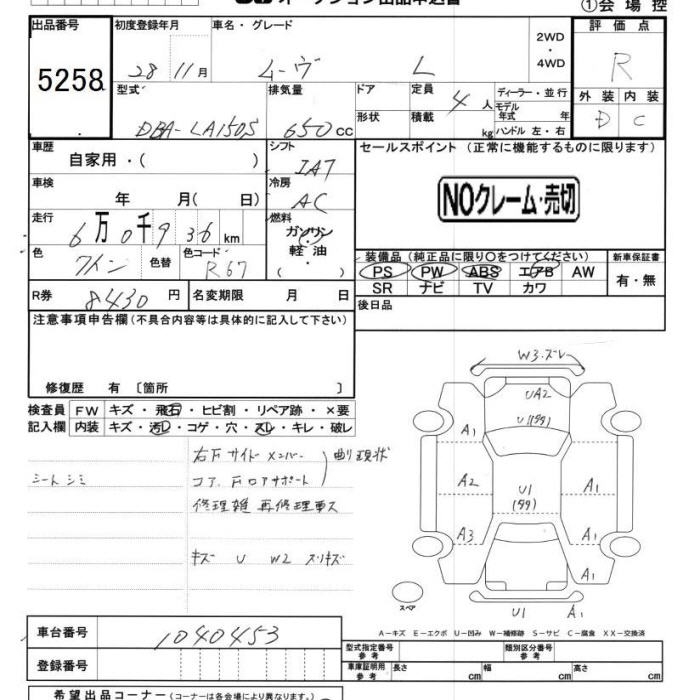 ①会場控
出品番号
5258
初度登録年月
28 11月
車名・グレード
ムーヴ L
2WD
・
4WD
評価点
R
外装 内装
D C
型式
DBA-LA150S
排気量
650cc
ドア
形状
定員
4人
積載
kg
ディーラー・並行
モデル年式 年
ハンドル 左・右
車歴
自家用・( )
シフト
IAT
車検
年 月( 日)
冷房
AC
走行
6万0千936km
燃料
ガソリン
軽油
( ・ )
色
ワイン
色替
色コード
R67
R券
8430円
名変期限 月 日
セールスポイント (正常に機能するものに限ります)
NOクレーム・売切
装備品 (純正品に限り○をつけてください)
PS PW ABS エアB AW
SR ナビ TV カワ
新車保証書
有・無
後日品
注意事項申告欄(不具合内容等は具体的に記入して下さい)
修復歴 有 〔箇所 〕
検査員
記入欄
FW キズ・飛石・ヒビ割・リペア跡・×要
内装 キズ・汚レ・コゲ・穴・スレ・キレ・破レ
シートシミ
右Fサイドメンバー
コアサポート
曲り現状
修理雑 再修理車
キズ U W2 スリキズ
W3・ズレ
UA2
U1
A1
A2
U1
A1
A3
A1
A1
スペア
U1 A1
A-キズ E-エクボ U-凹み W-補修跡 S-サビ C-腐食 XX-交換済
車台番号
1040453
登録番号
型式指定番号
参考
類別区分番号
参考
車庫証明用
参考
長さ cm
幅 cm
高さ cm
希望出品コーナー(コーナーは各会場により異なります。)